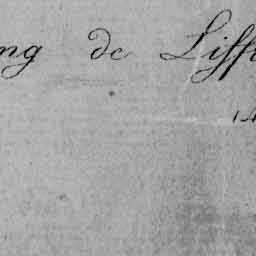 ng de Liff
14